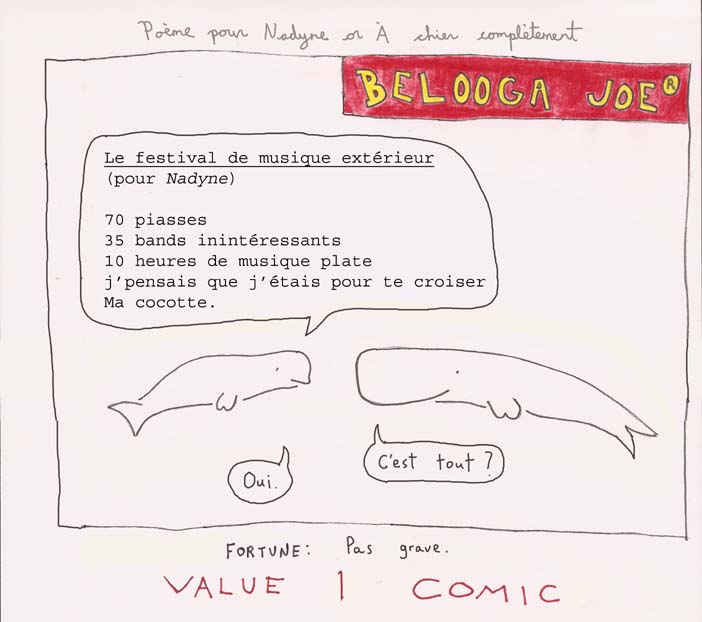 Poème pour Nadyne or À chier complètement
BELOOGA JOE®
Le festival de musique extérieur
(pour Nadyne)
70 piasses
35 bands inintéressants
10 heures de musique plate
j'pensais que j'étais pour te croiser
Ma cocotte.
C'est tout ?
Oui.
FORTUNE: Pas grave.
VALUE 1 COMIC